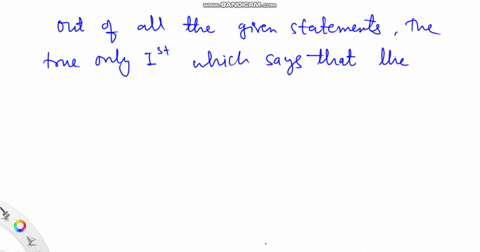 WWW.BANDICAM.COM
out of all the given statements, The
true only Ist which says that the